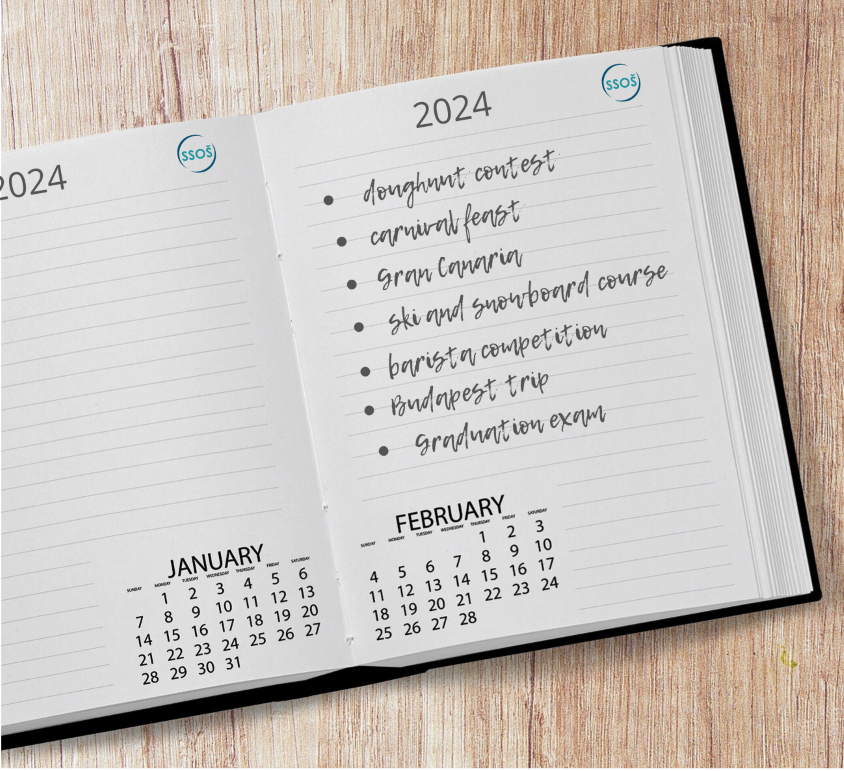 2024
SSOŠ
SUNDAY MONDAY TUESDAY WEDNESDAY THURSDAY FRIDAY SATURDAY
JANUARY
1 2 3 4 5 6
7 8 9 10 11 12 13
14 15 16 17 18 19 20
21 22 23 24 25 26 27
28 29 30 31
2024
SSOŠ
• doughnut contest
• carnival feast
• Gran Canaria
• ski and snowboard course
• barista competition
• Budapest trip
• Graduation exam
FEBRUARY
SUNDAY MONDAY TUESDAY WEDNESDAY THURSDAY FRIDAY SATURDAY
1 2 3
4 5 6 7 8 9 10
11 12 13 14 15 16 17
18 19 20 21 22 23 24
25 26 27 28